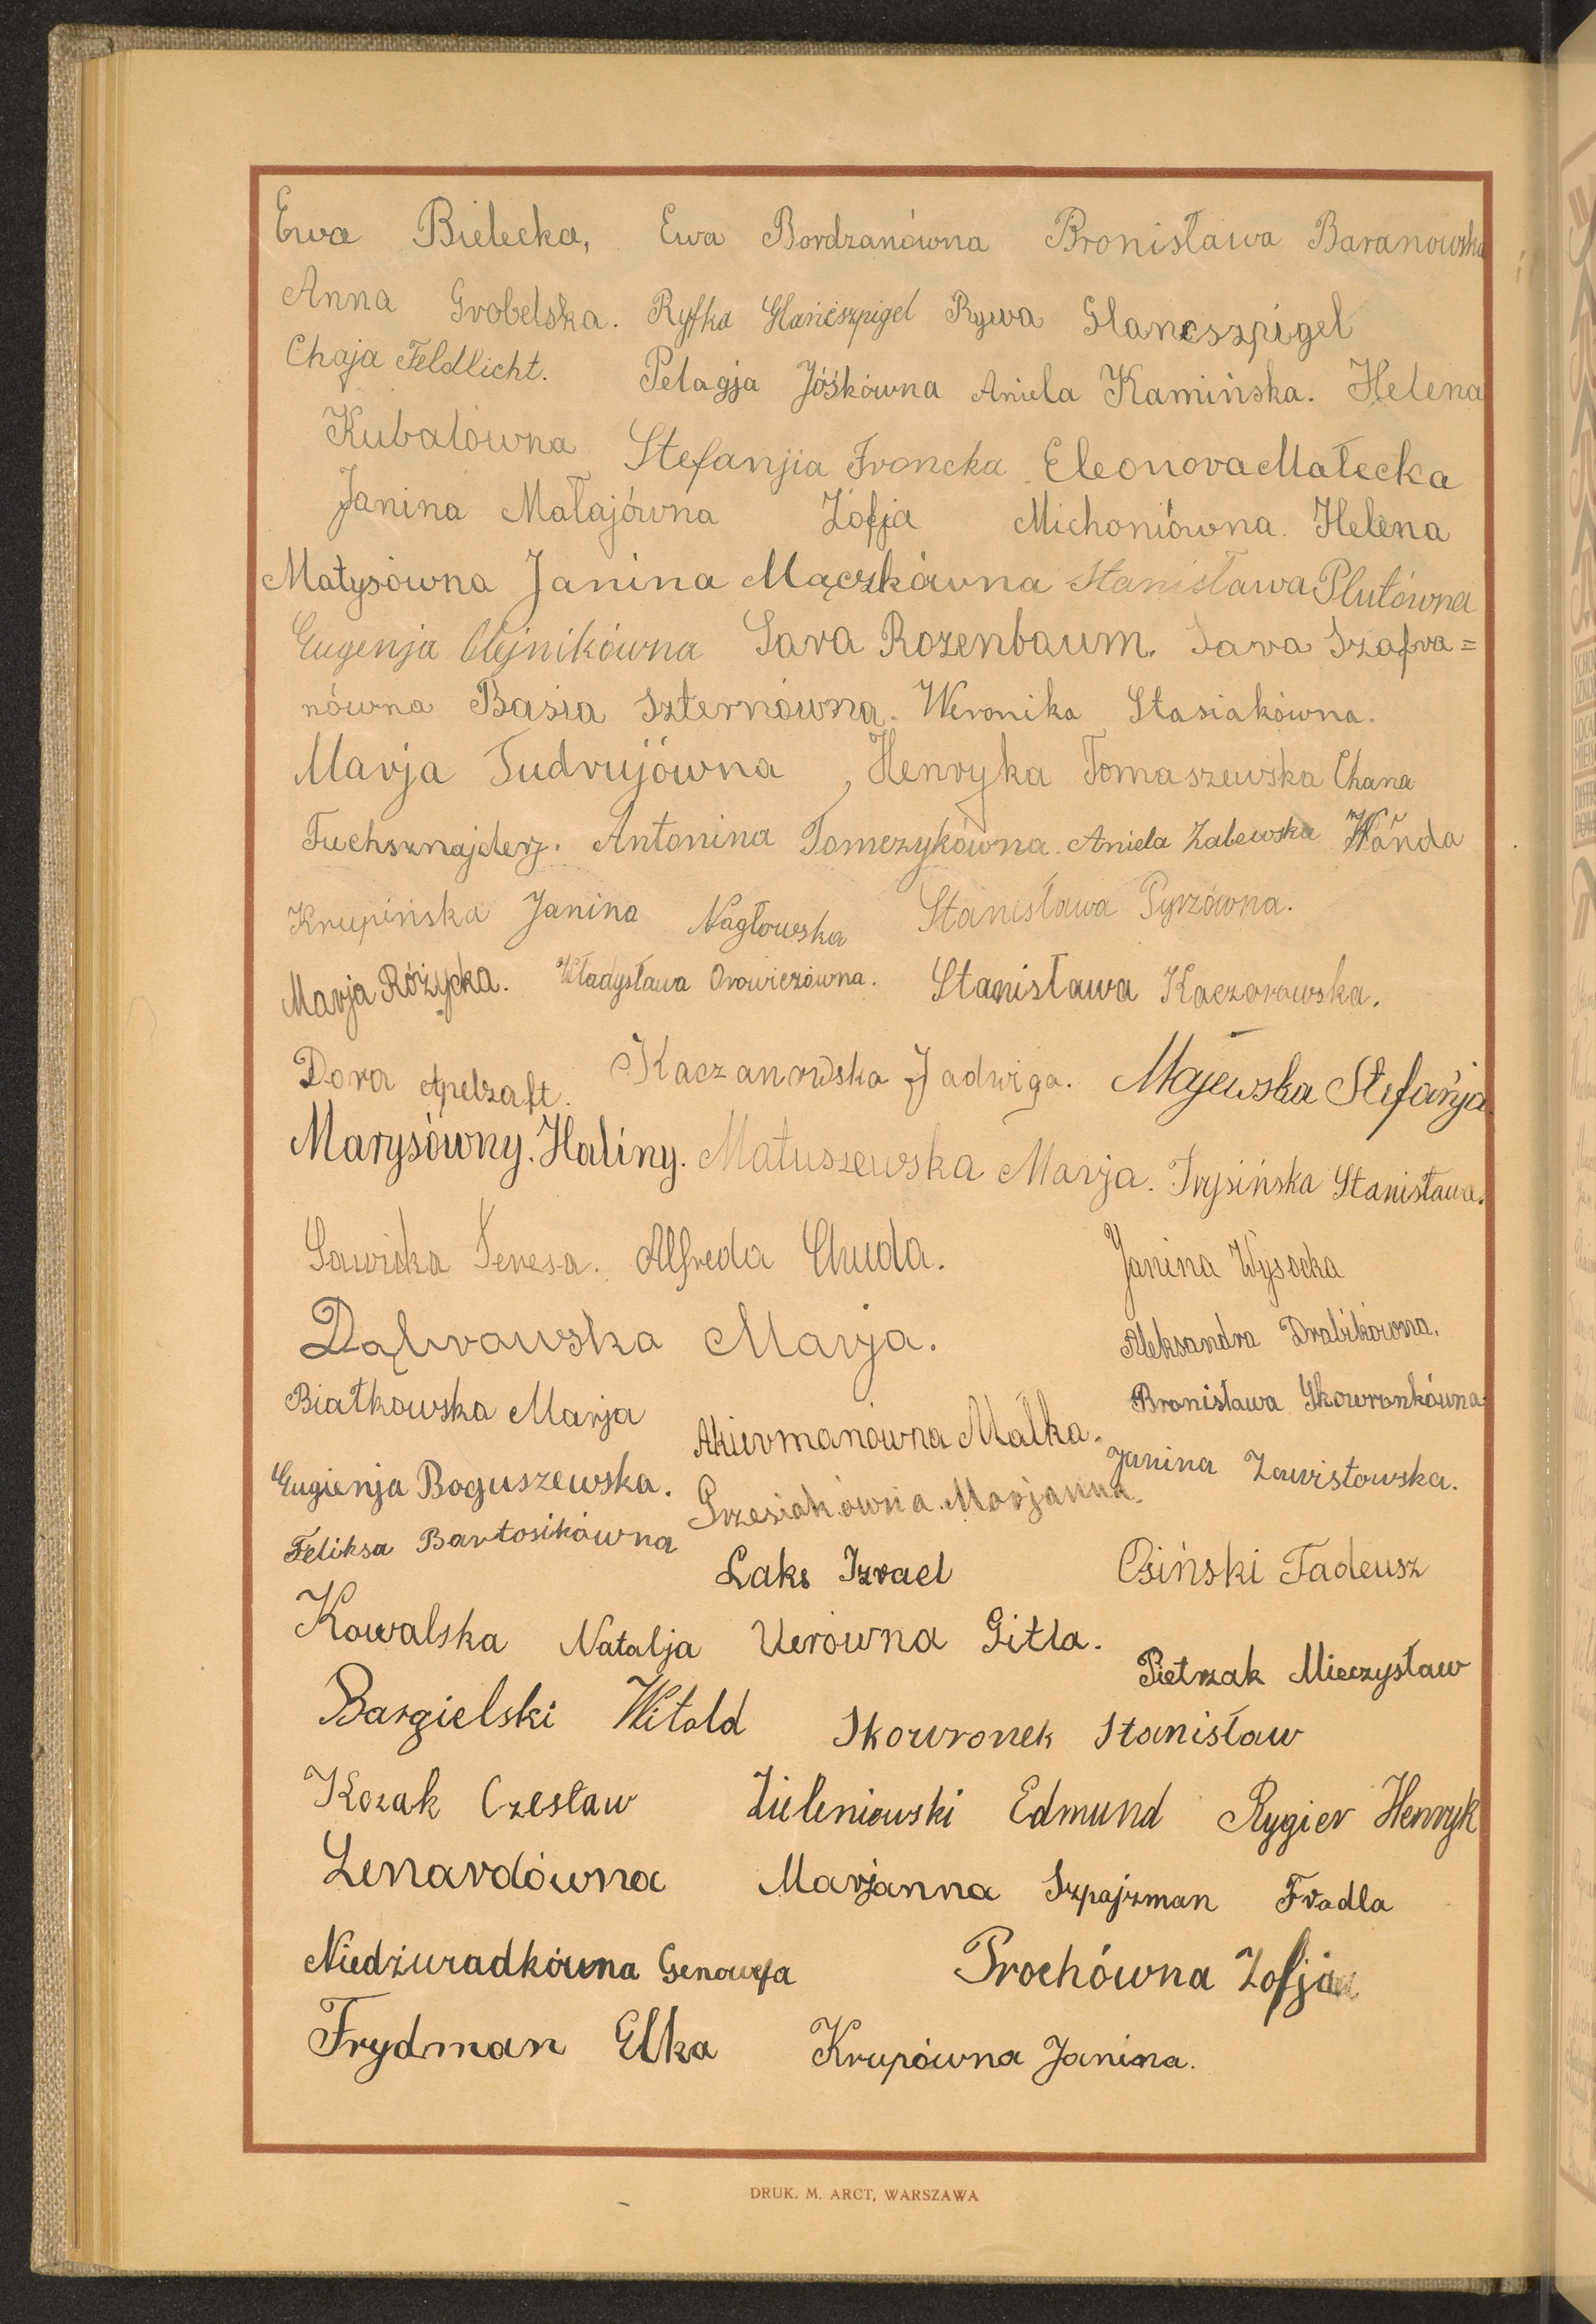 Ewa Bielecka, Ewa Bordzanówna Bronisława Baranowska
Anna Grobelska. Ryfka Glancszpigel Rywa Glancszpigel
Chaja Feldlicht. Pelagja Jóśkówna Aniela Kamińska. Helena
Kubalówna Stefanjia Froncka Eleonora Małecka
Janina Małajówna Zofja Michoniówna. Helena
Matysówna Janina Mączkówna Stanisława Plutówna
Eugenja Olejnikówna Sara Rozenbaum. Sara Szafra=
nówna Basia Szternówna. Weronika Stasiakówna.
Marja Tudrujówna, Henryka Tomaszewska Chana
Fuchsznajderz. Antonina Tomczykówna. Aniela Zalewska Wanda
Krupińska Janina Nagłowska Stanisława Pyrzówna.
Marja Różycka. Władysława Orowiczówna. Stanisława Kaczorowska.
Dora Apelzaft. Kaczanowska Jadwiga. Majewska Stefanja.
Marysówny. Haliny. Matuszewska Marja. Trysińska Stanisława.
Sawicka Teresa. Alfreda Chuda. Janina Wysocka
Dąbrowska Marja. Aleksandra Drabikówna.
Białkowska Marja Akiermanówna Malka. Bronisława Skowronkówna
Eugienja Boguszewska. Grzesiakówna Marjanna. Janina Zawistowska.
Feliksa Bartosikówna Laks Izrael Osiński Tadeusz
Kowalska Natalja Uerówna Gitla. Pietrzak Mieczysław
Bargielski Witold Skowronek Stanisław
Kozak Czesław Zieleniewski Edmund Rygier Henryk
Lenardówna Marjanna Szpajzman Fradla
Niedźwradkówna Genowefa Prochówna Zofja
Frydman Elka Krupówna Janina.
DRUK. M. ARCT, WARSZAWA